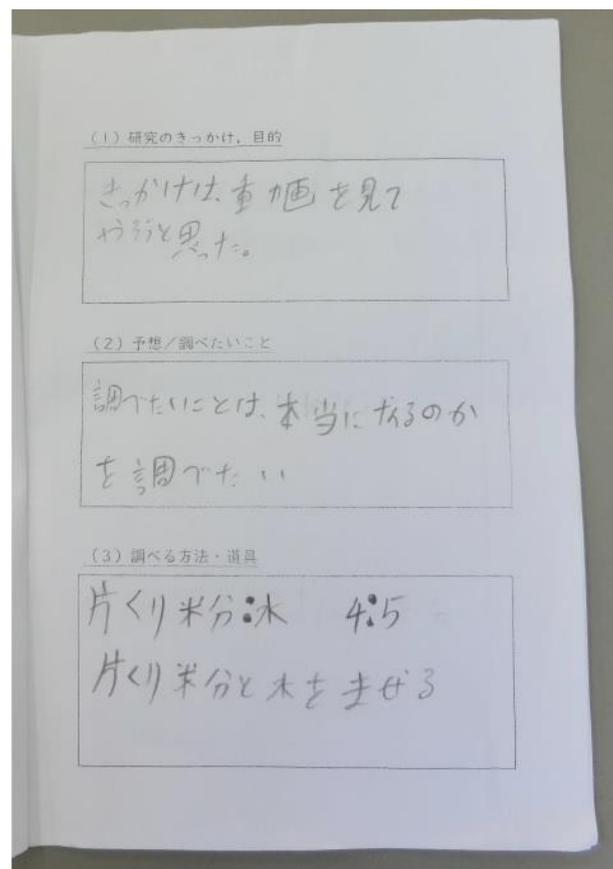 (1)研究のきっかけ，目的
きっかけは、動画を見て
やろうと思った。
(2)予想／調べたいこと
調べたいことは、本当になるのか
を調べたい
(3)調べる方法・道具
片くり粉:水 4:5
片くり粉と水をまぜる